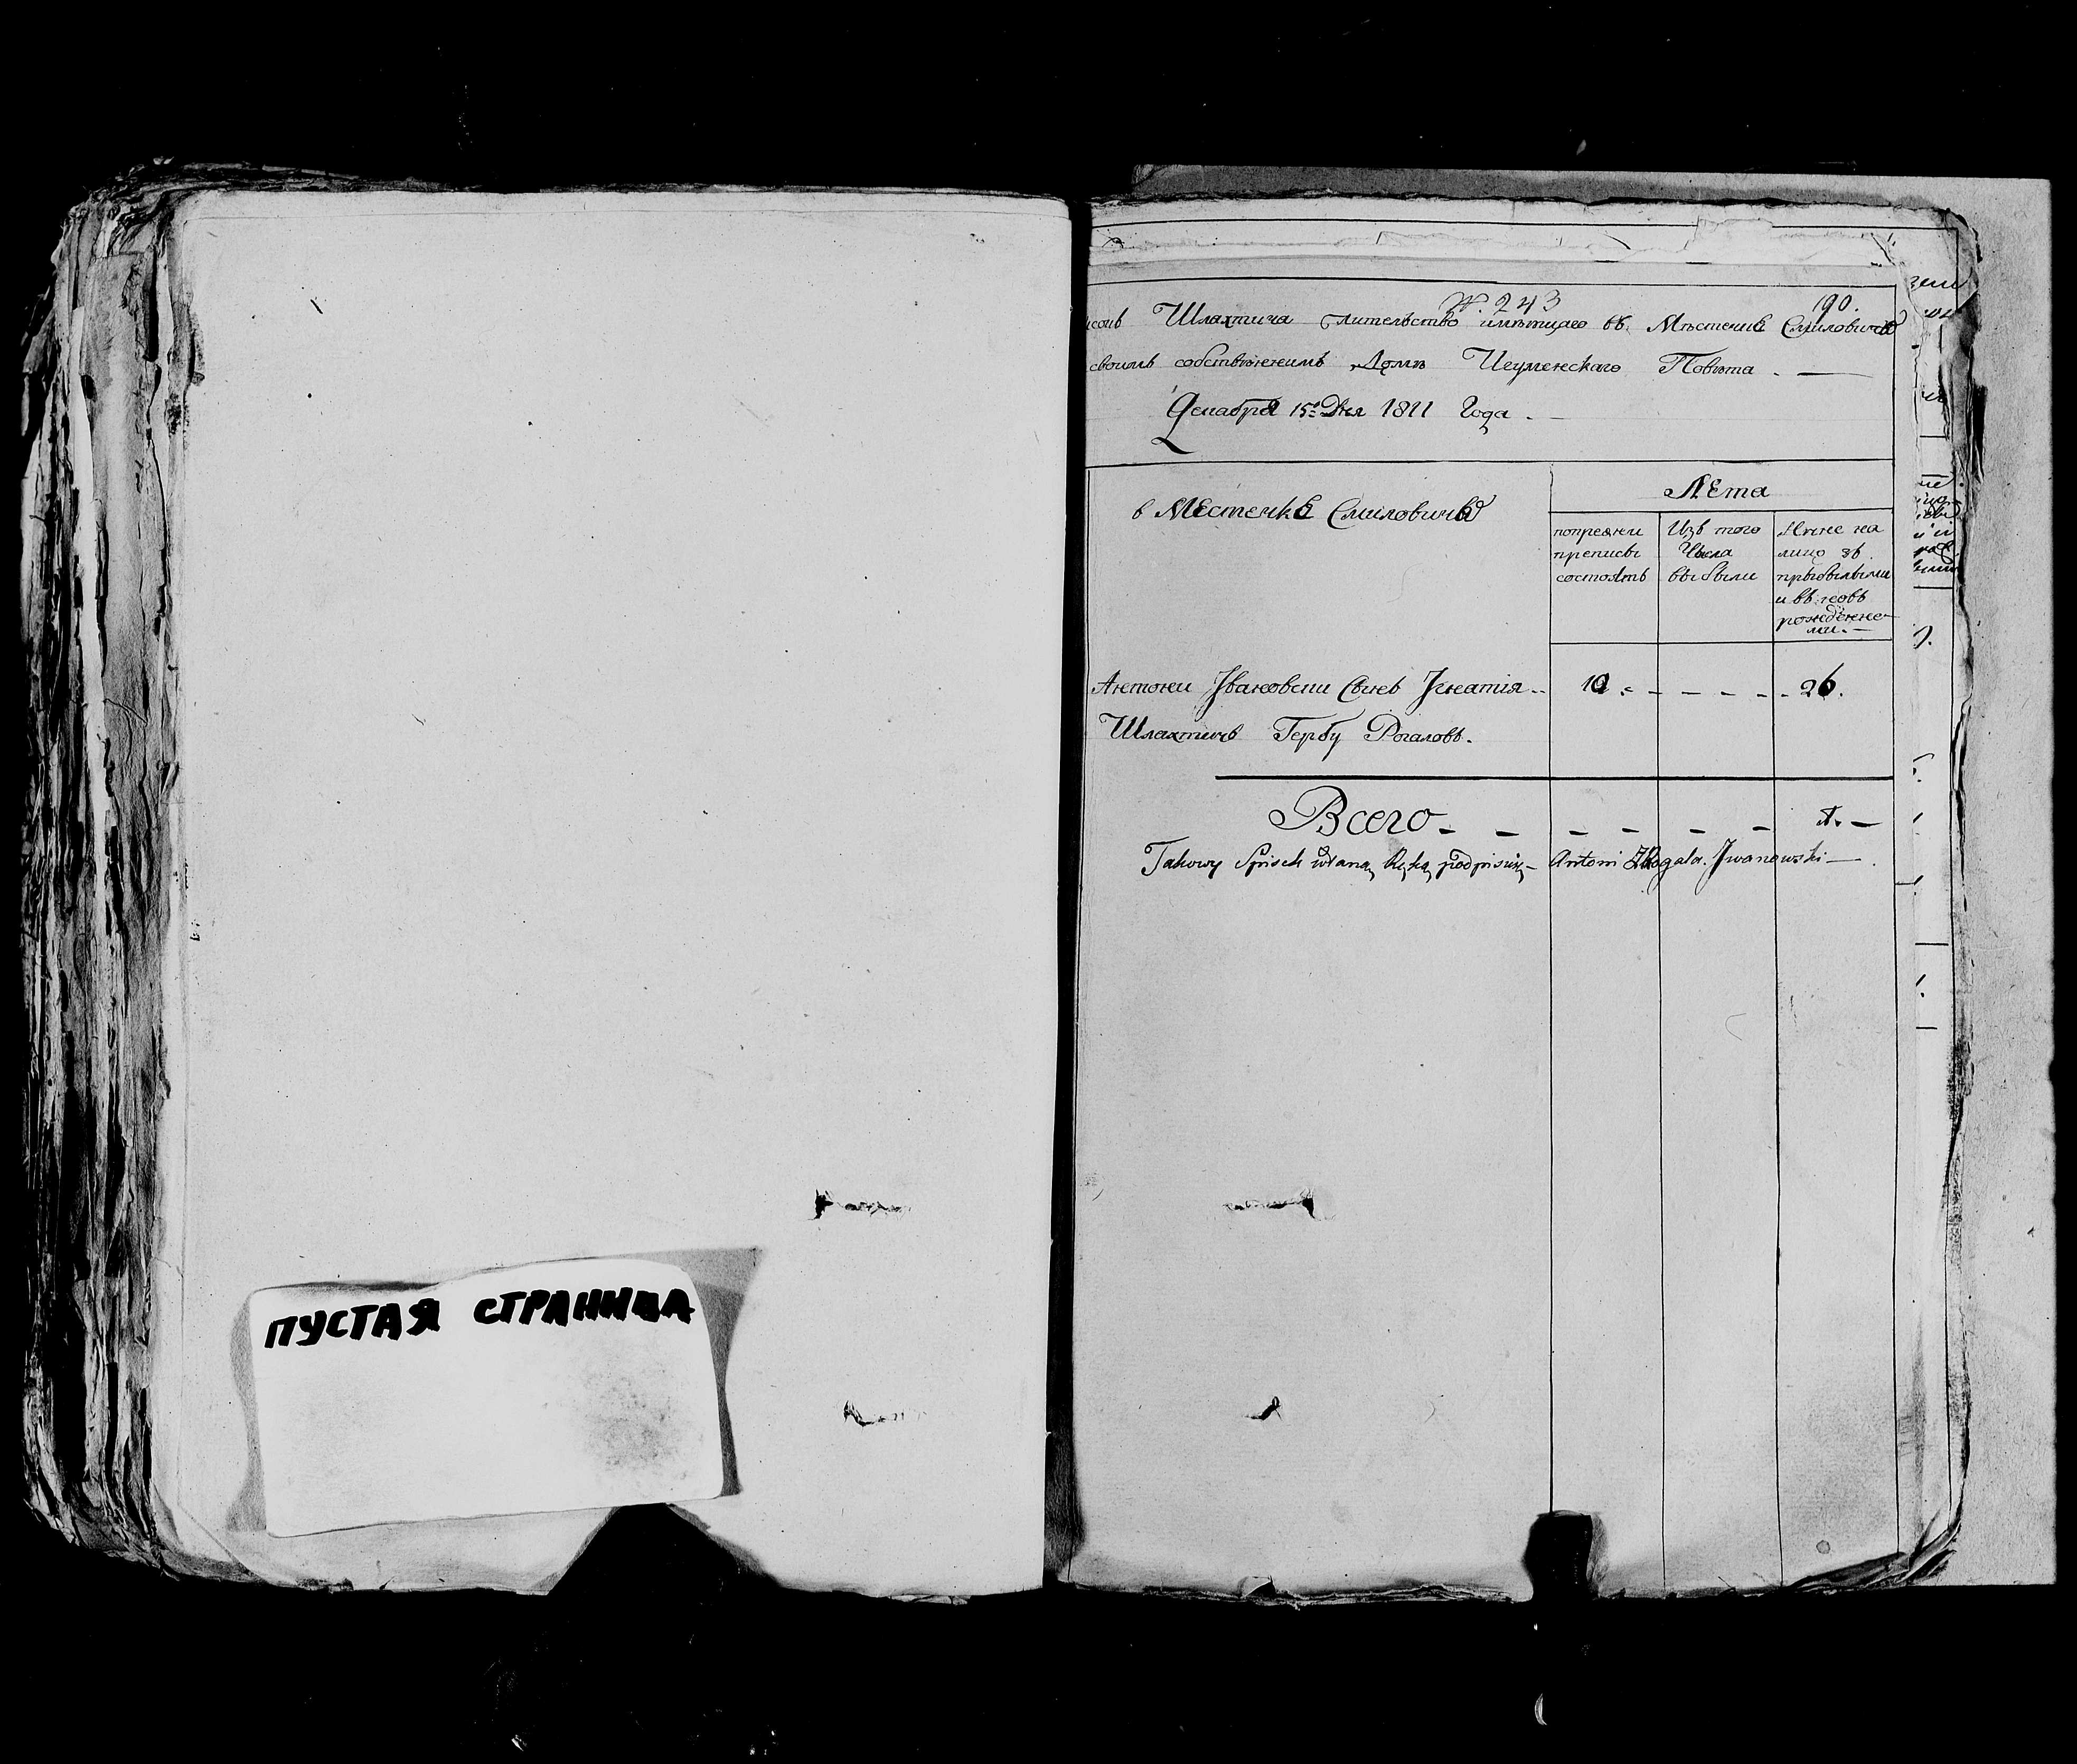 ПУСТАЯ СТРАНИЦА
№ 243
190.
Шляхтича жительство имеющаго въ Мѣстечкѣ Смиловичахъ
своимъ собственнимъ Домѣ Игуменскаго Повѣта . —
Декабря 15го Дня 1811 Года . —
в МЕстечкѢ Смиловичахъ
ЛЕта
попрежни преписы состоятъ
Изъ того Числа выбыли
Ныне на лицо зъ прыбылыми и въ новъ рожденне-ми. —
Антони Ивановски Сынъ Игнатія ..
26.
Шляхтичъ Гербу Рогаловъ.
Всего
1. —
Takowy Spisek własną Ręką podpisuię — Antoni Rogala. Jwanowski —